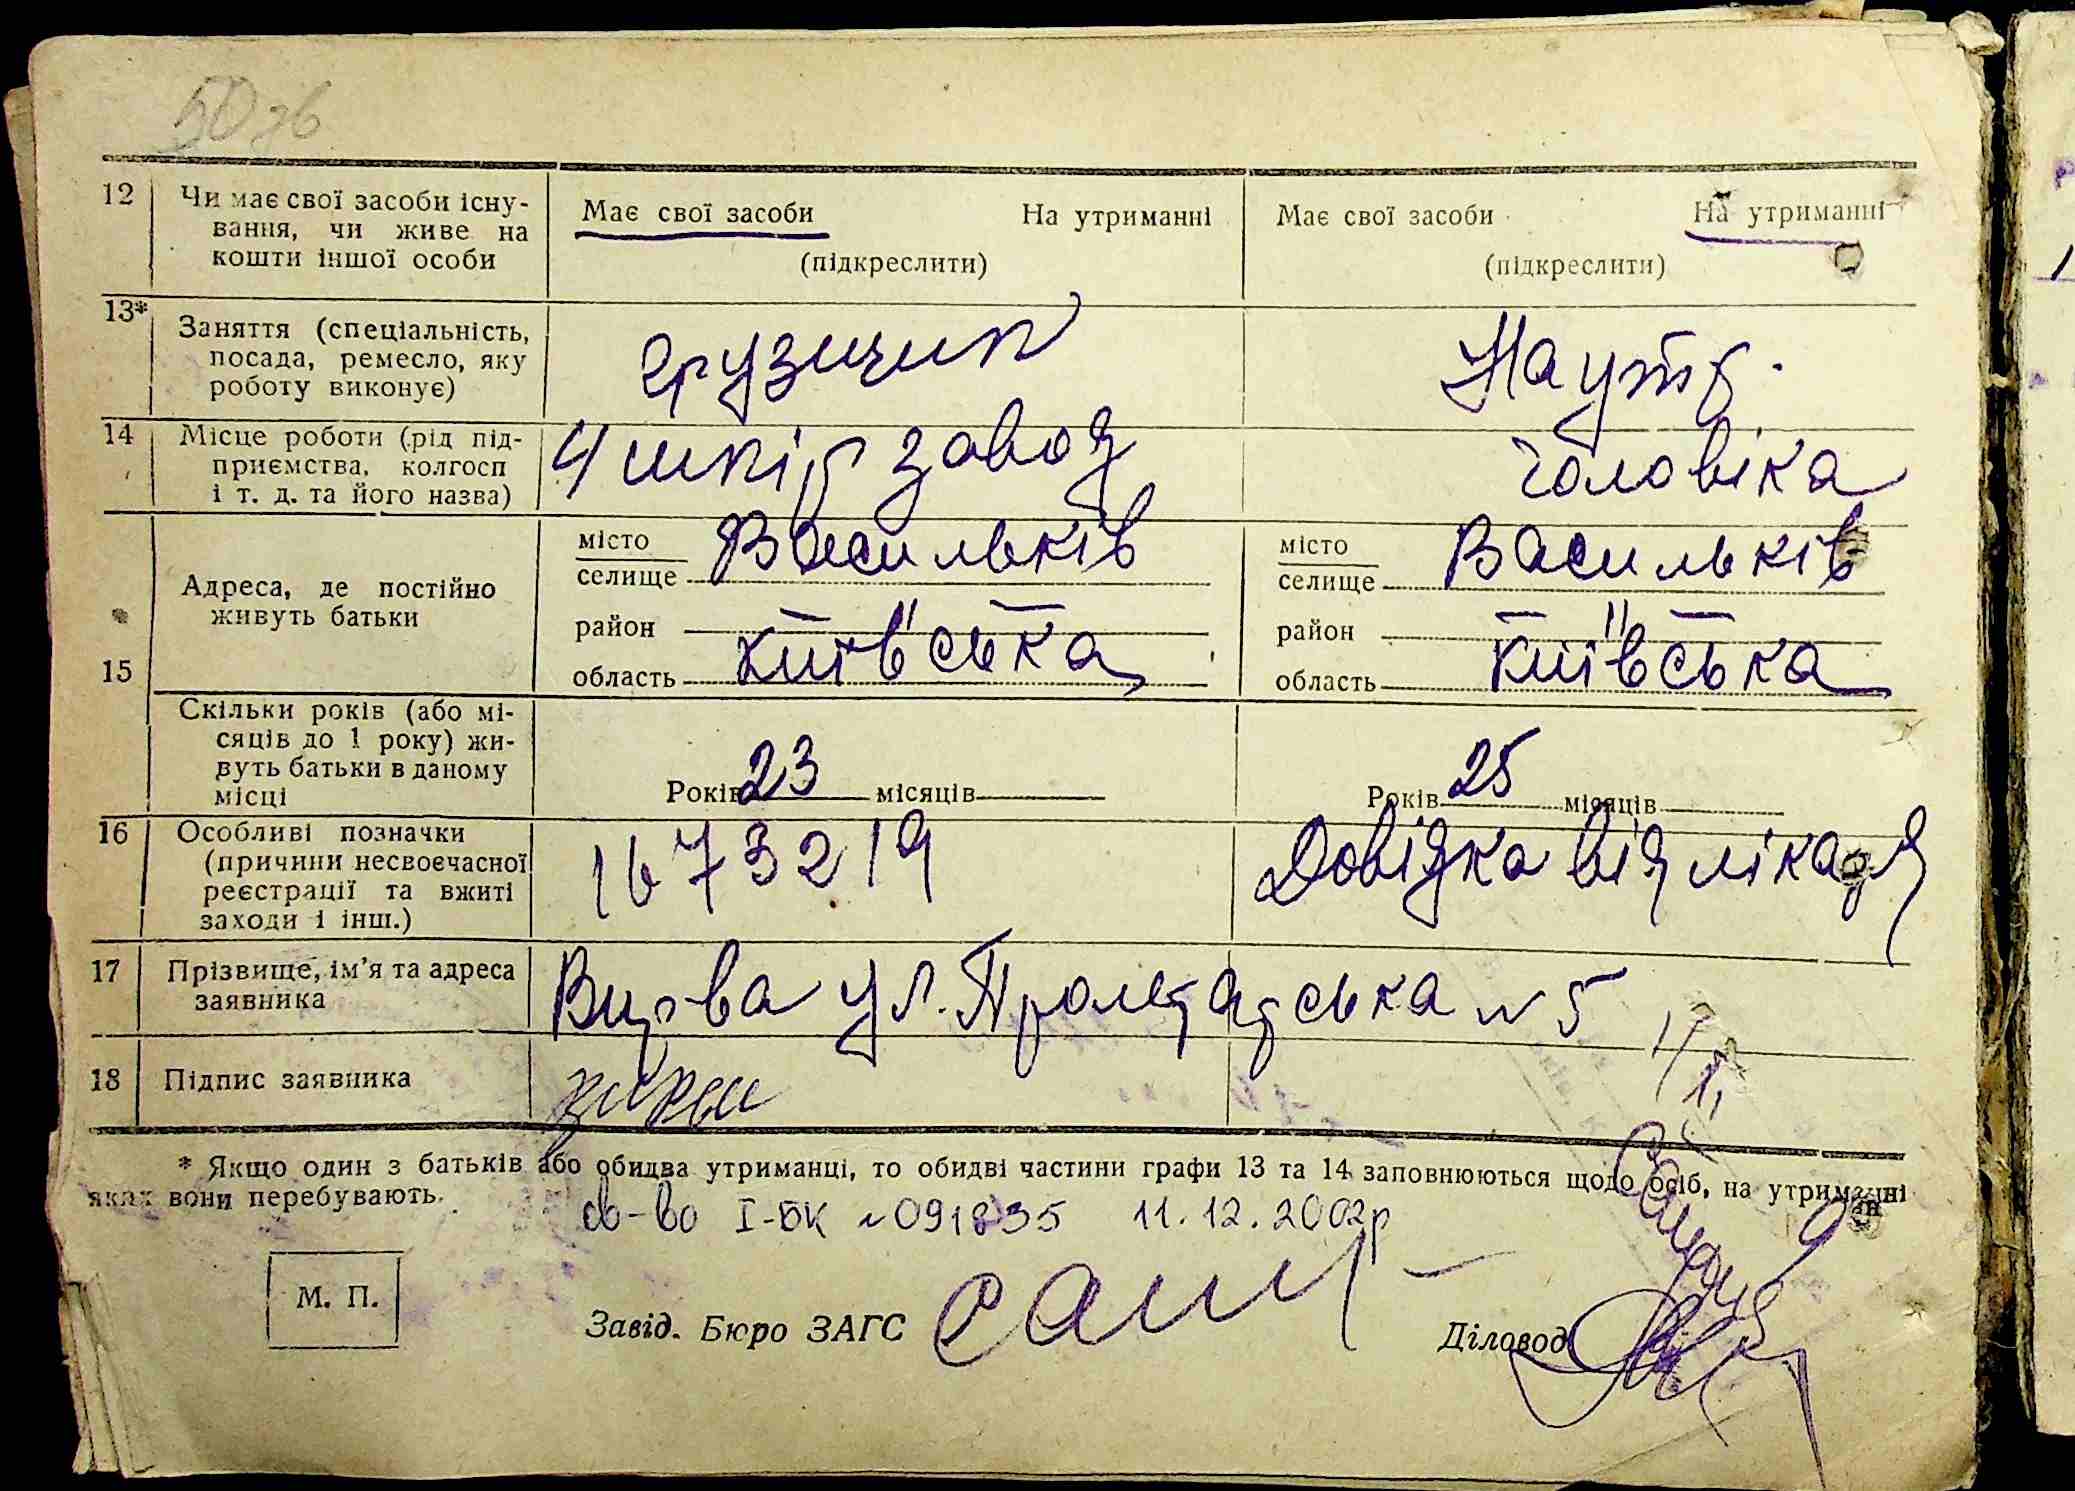 50 зв
12 Чи має свої засоби існу-
вання, чи живе на
кошти іншої особи
Має свої засоби На утриманні
(підкреслити)
Має свої засоби На утриманні
(підкреслити)
13* Заняття (спеціальність,
посада, ремесло, яку
роботу виконує)
На утр.
14 Місце роботи (рід під-
приємства, колгосп
і т. д. та його назва)
4 шкір завод
чоловіка
15 Адреса, де постійно
живуть батьки
місто
селище Васильків
район — " —
область Київська
місто
селище Васильків
район — " —
область Київська
Скільки років (або мі-
сяців до 1 року) жи-
вуть батьки в даному
місці
Років 23 місяців
Років 25 місяців
16 Особливі позначки
(причини несвоєчасної
реєстрації та вжиті
заходи і інш.)
1673219
Довідка від лікаря
17 Прізвище, ім'я та адреса
заявника
ул. Пролетарська № 5
18 Підпис заявника
* Якщо один з батьків або обидва утриманці, то обидві частини графи 13 та 14 заповнюються щодо осіб, на утриманні
яких вони перебувають.
св-во І-БК № 091835 11.12.2002р
М. П.
Завід. Бюро ЗАГС
Діловод